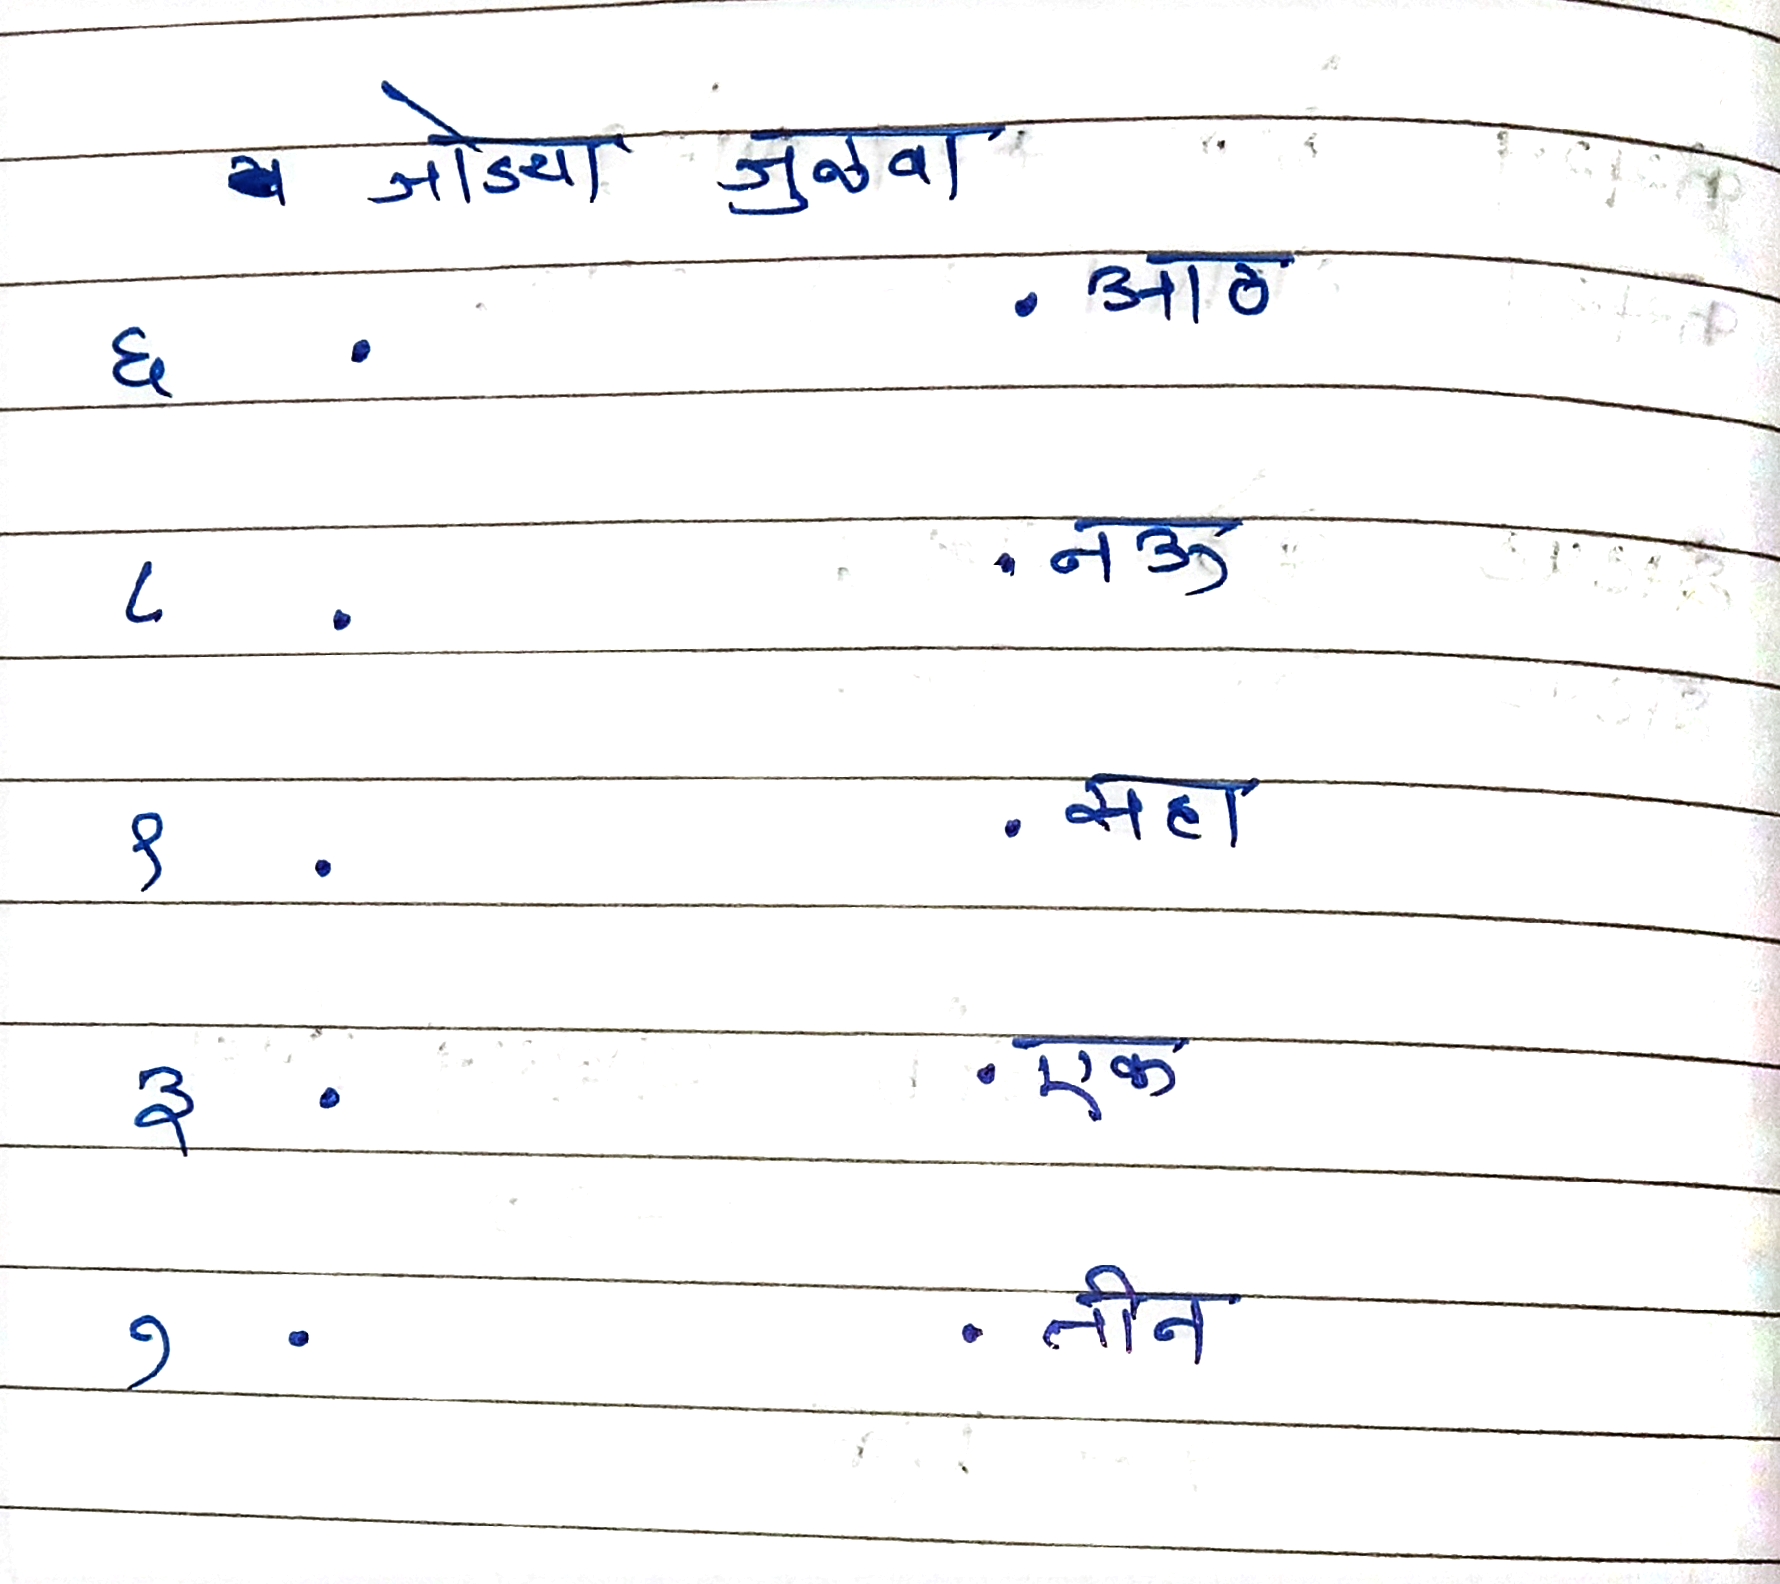 जोड्या जुळवा
६ • • आठ
८ • • नऊ
९ • • सहा
३ • • एक
१ • • तीन